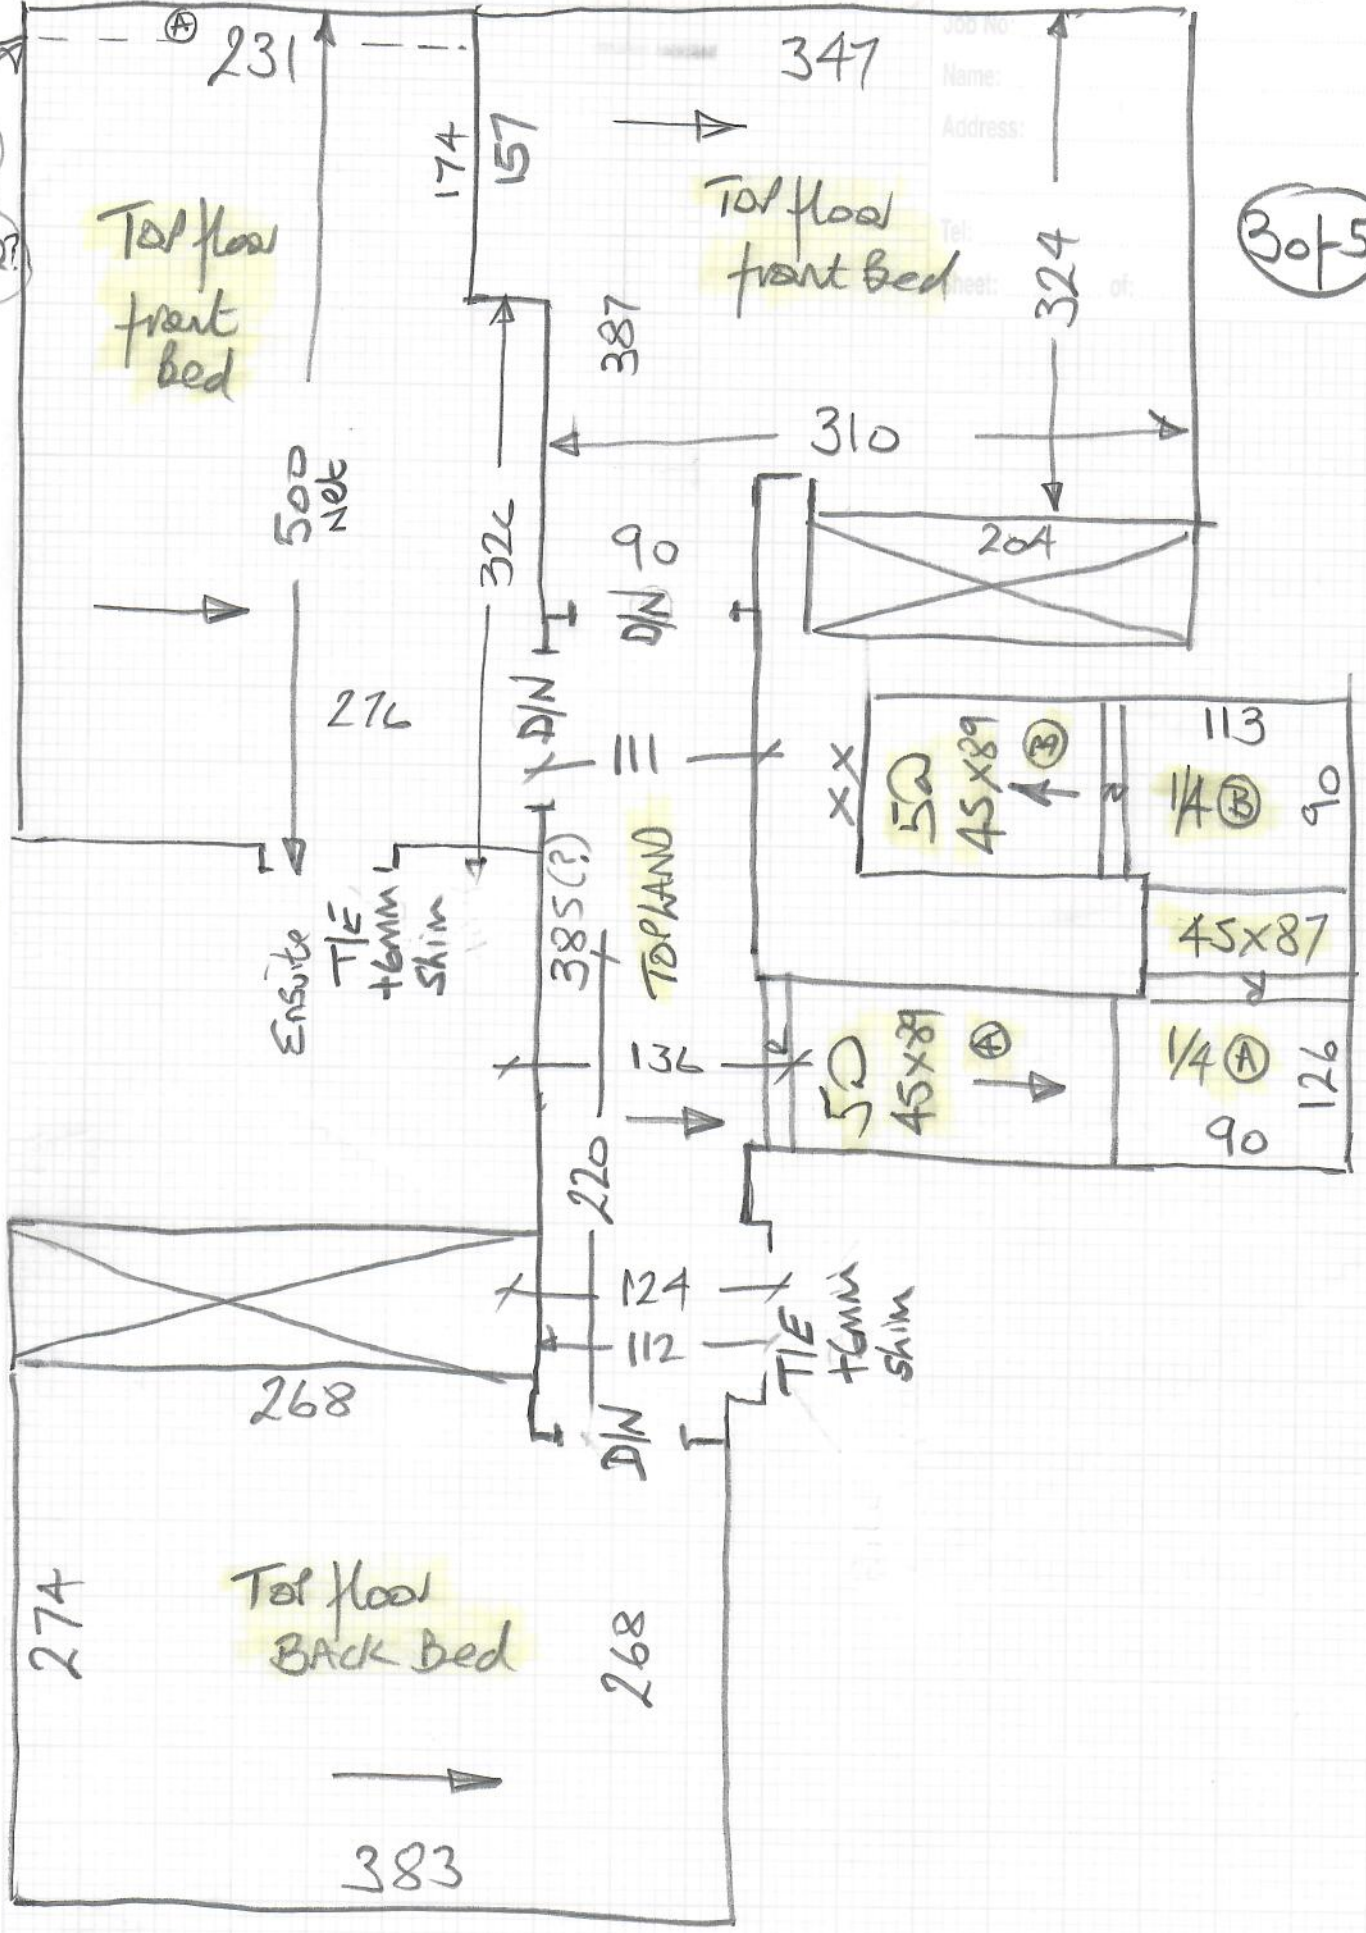 Job No:
Name:
Address:
Tel:
Sheet: of:
3 of 5
A
231
347
174
157
Top floor
front
Bed
Top floor
front Bed
324
387
310
500
Net
326
90
D/N
204
276
D/N
111
XX
5
45x89
B
113
1/4 B
90
385(?)
TOPLAND
45x87
Ensuite
T/E
+6mm
Shim
136
5
45x89
A
1/4 A
126
90
220
124
112
T/E
+6mm
Shim
268
D/N
274
Top floor
BACK Bed
268
383